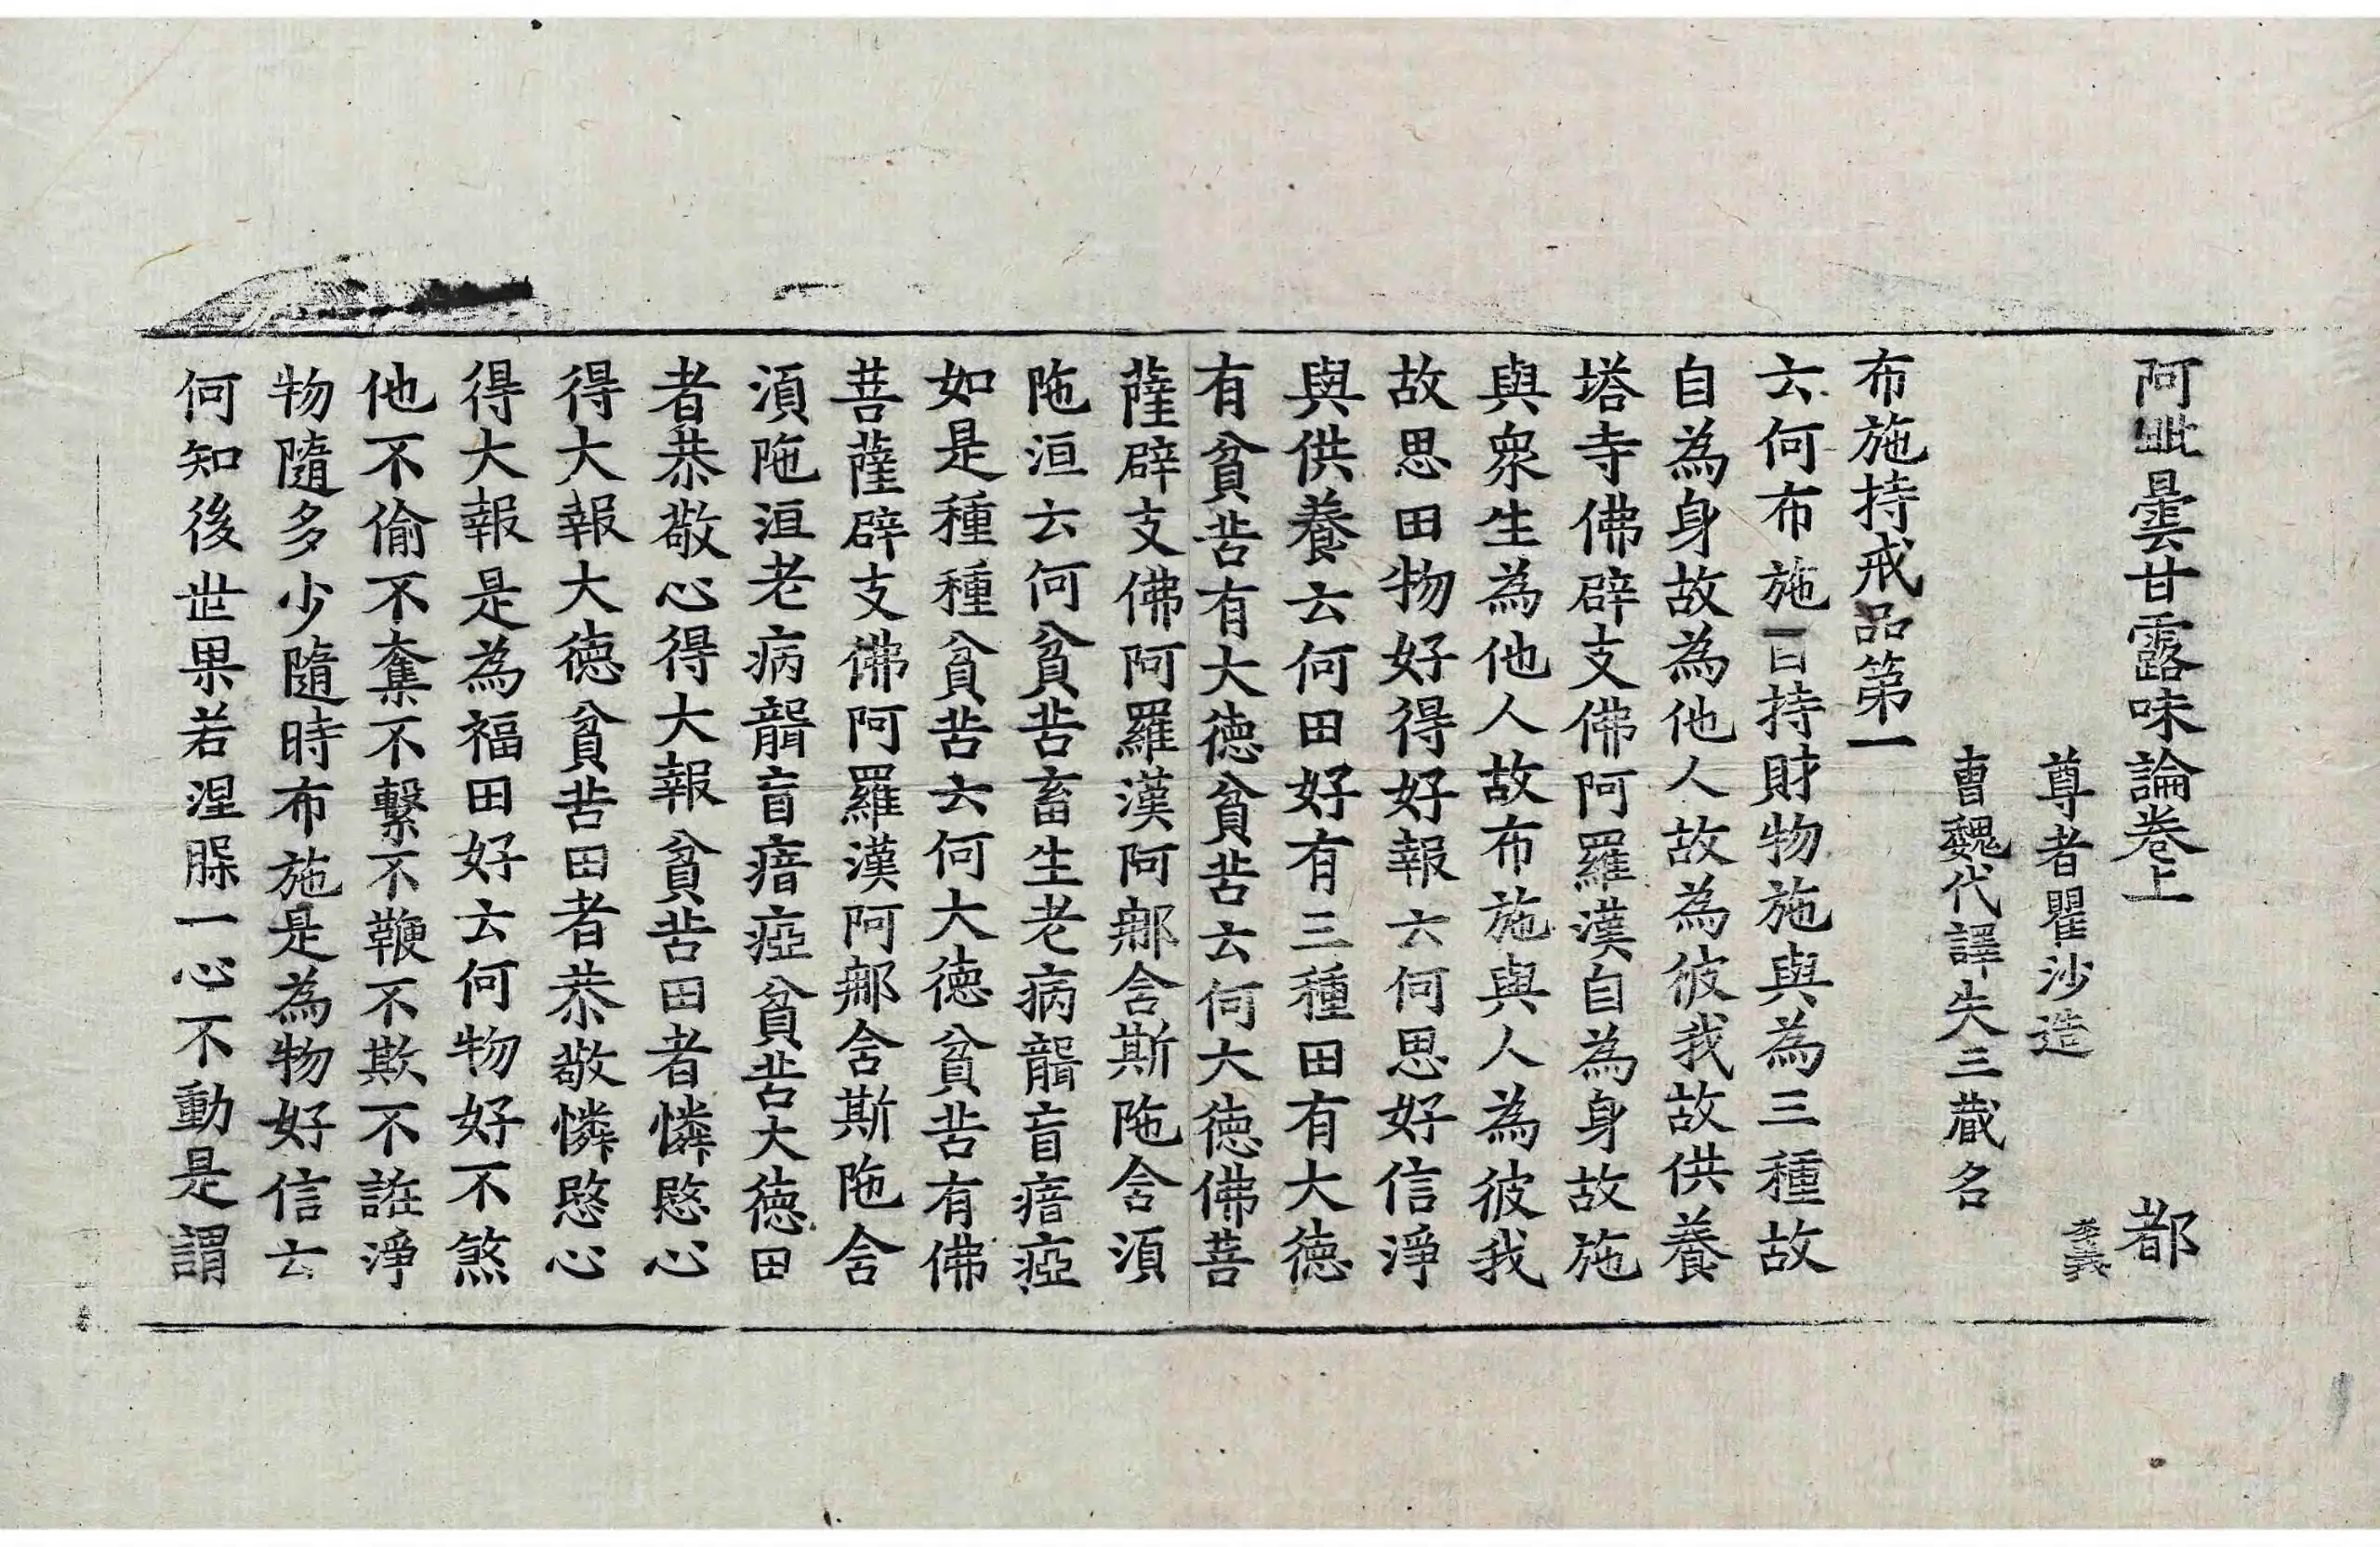 阿毗曇甘露味論卷上 都
尊者瞿沙造 李義
曺魏代譯失三藏名
布施持戒品第一
云何布施一曰持財物施與為三種故
自為身故為他人故為彼我故供養
塔寺佛辟支佛阿羅漢自為身故施
與衆生為他人故布施與人為彼我
故思田物好得好報云何思好信淨
與供養云何田好有三種田有大德
有貧苦有大德貧苦云何大德佛菩
薩辟支佛阿羅漢阿那含斯陁含須
陁洹云何貧苦畜生老病聾盲瘖瘂
如是種種貧苦云何大德貧苦有佛
菩薩辟支佛阿羅漢阿那含斯陁含
須陁洹老病聾盲瘖瘂貧苦大德田
者恭敬心得大報貧苦田者憐愍心
得大報大德貧苦田者恭敬憐愍心
得大報是為福田好云何物好不煞
他不偷不奪不繫不鞭不欺不誑淨
物隨多少隨時布施是為物好信云
何知後世果若涅槃一心不動是謂